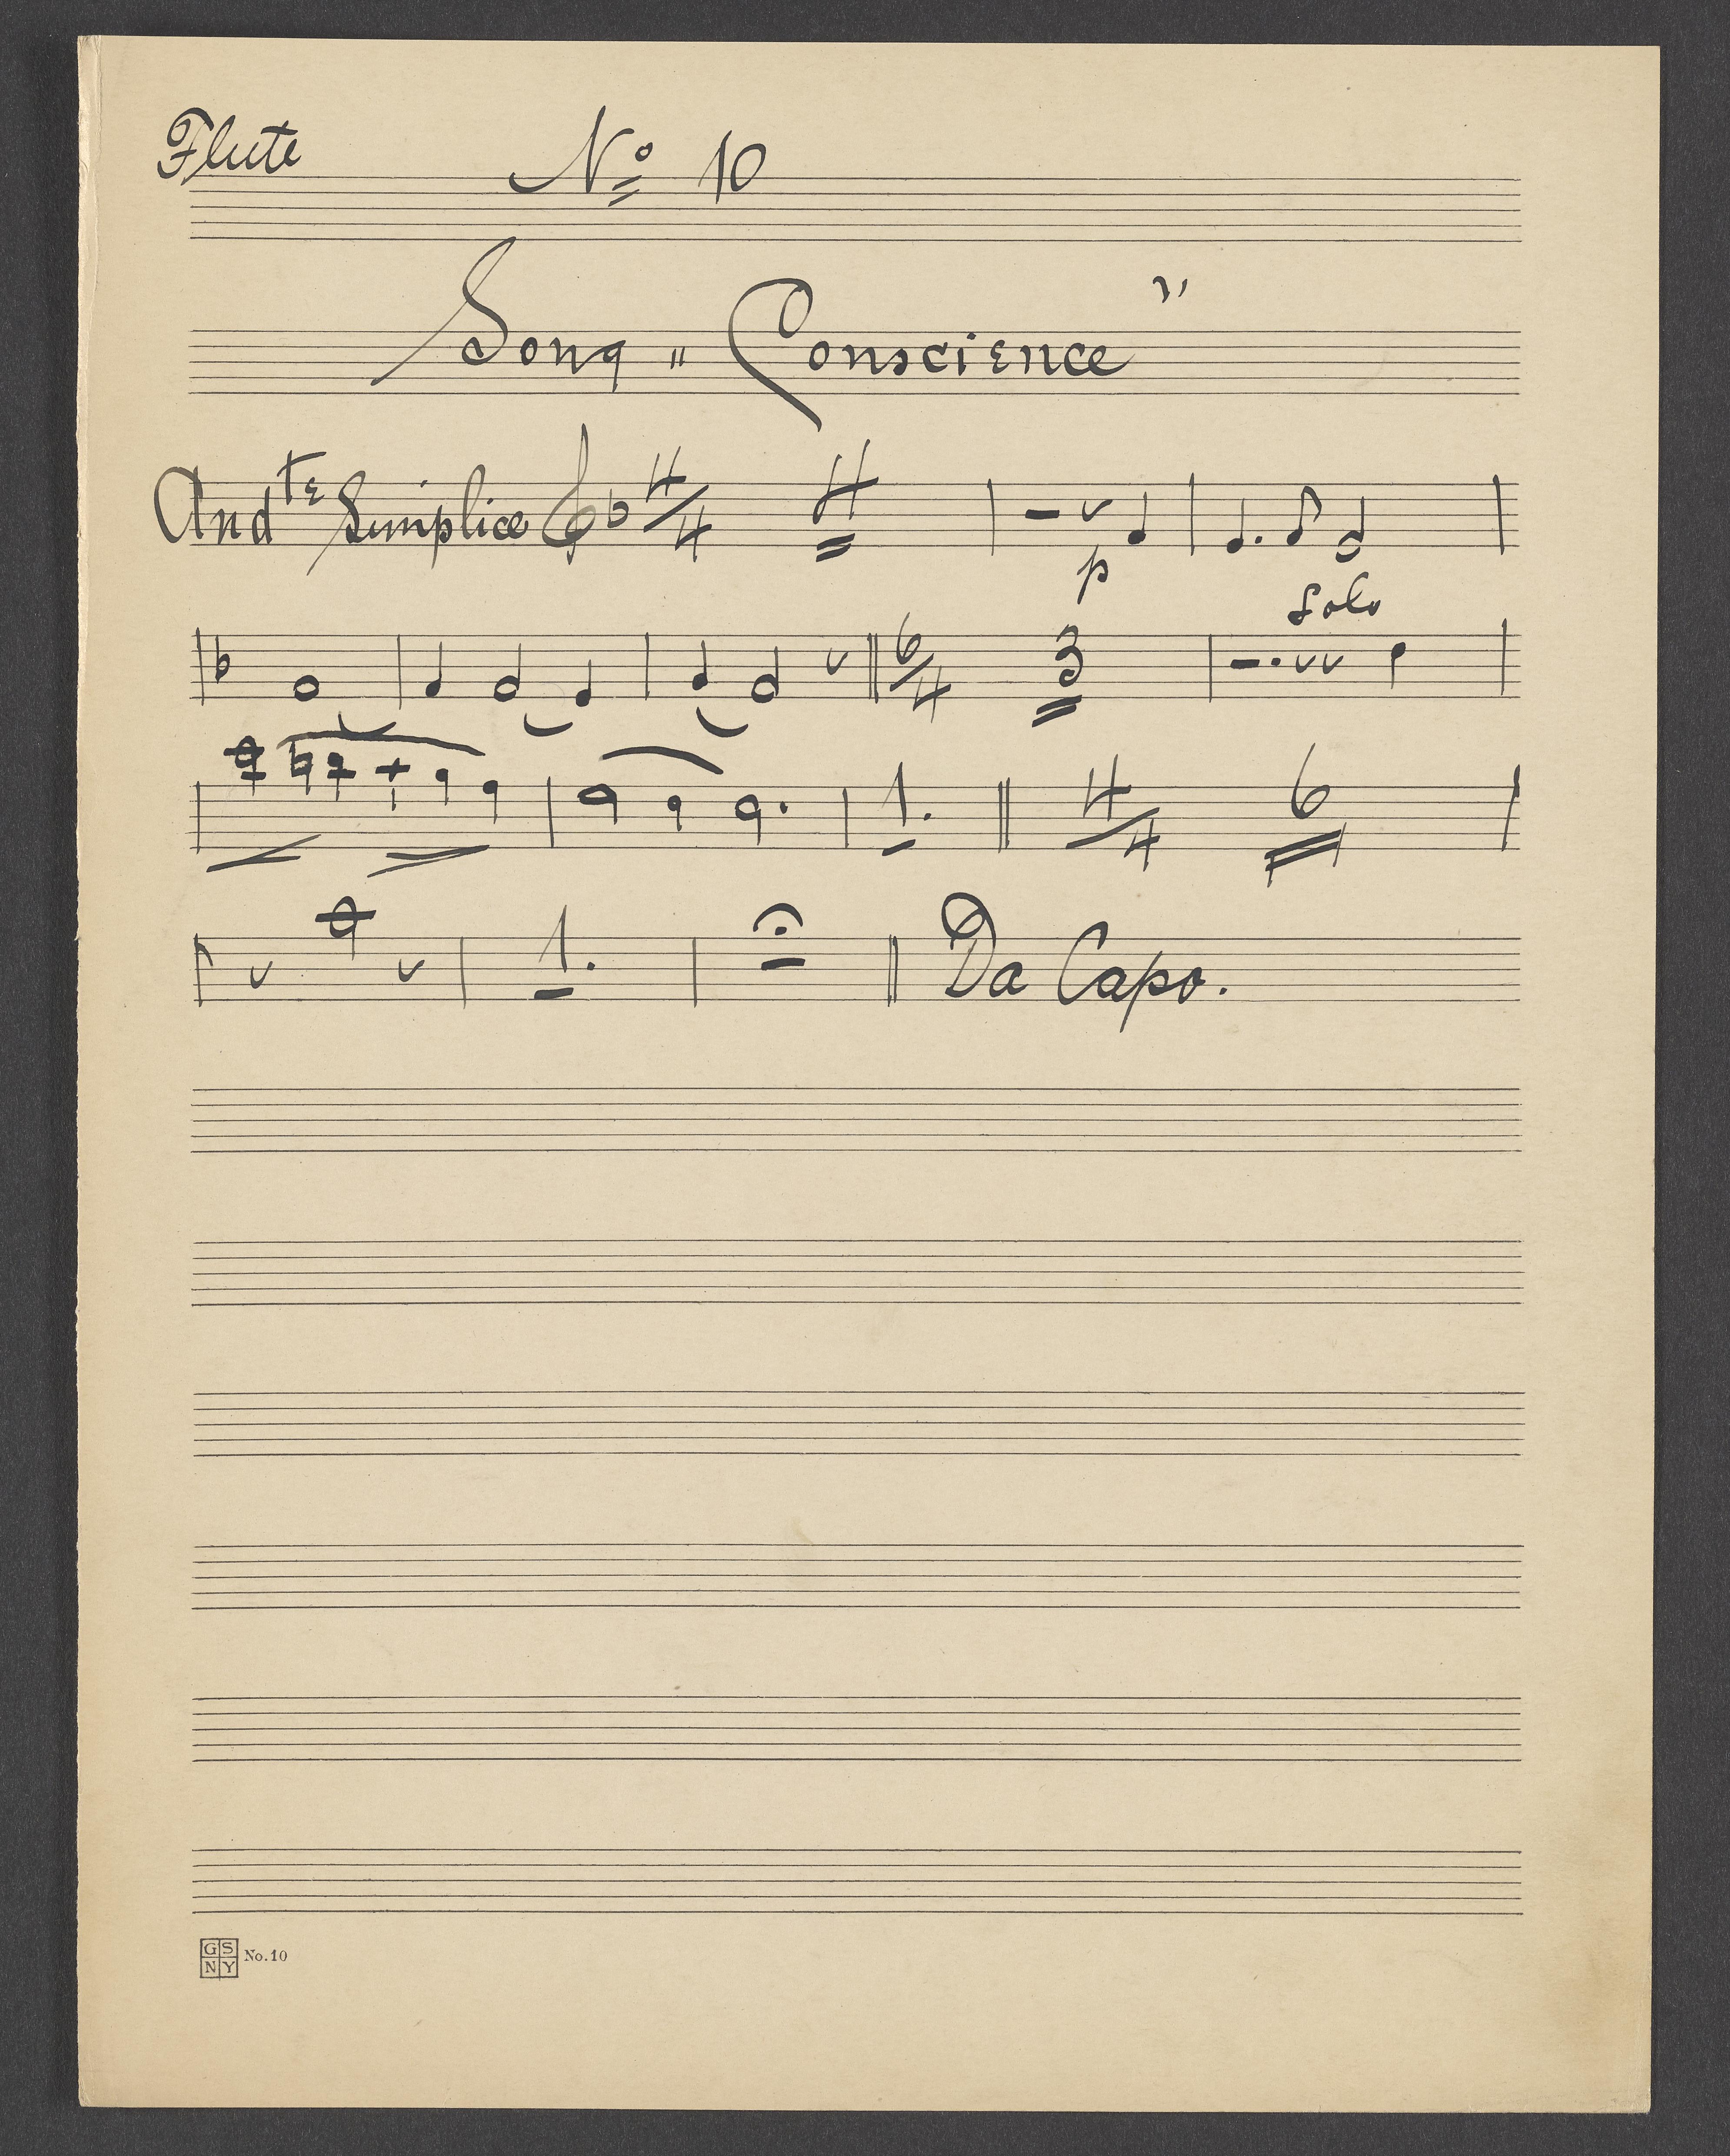 Flute No 10
Song "Conscience"
Andte Simplice 4/4 4
p
Solo
6/4 3
1. 4/4 6
1. Da Capo.
GS
NY No.10